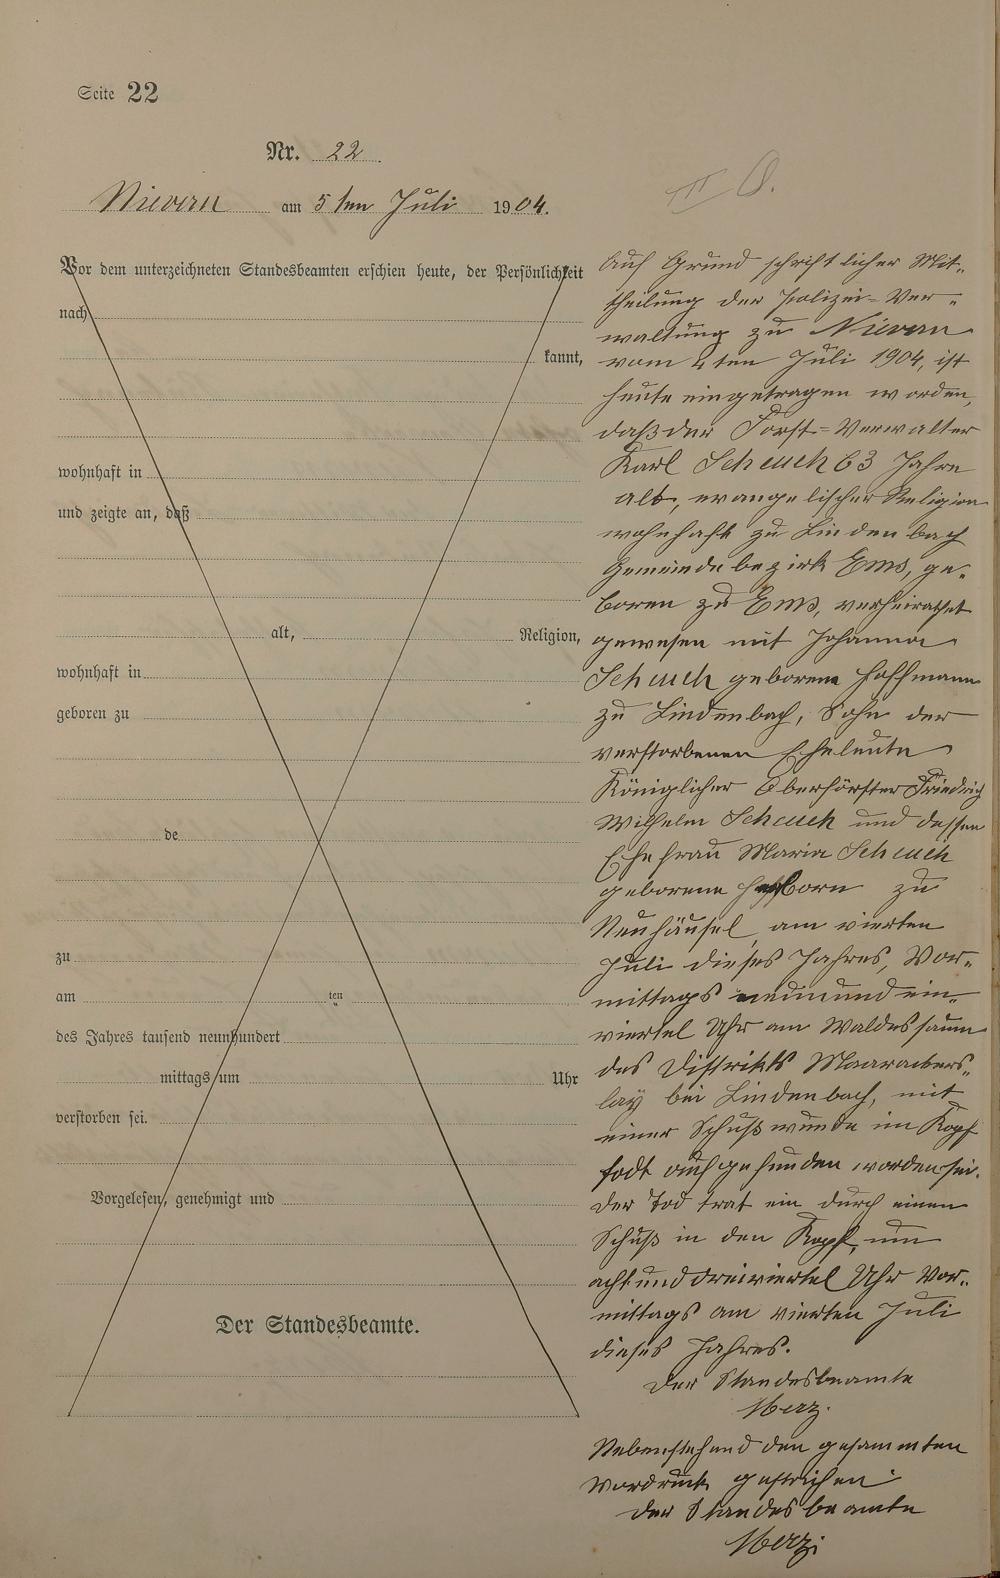 Seite 22
Nr. 22
Nievern am 5ten Juli 1904.
Vor dem unterzeichneten Standesbeamten erschien heute, der Persönlichkeit
nach
kannt,
wohnhaft in
und zeigte an, daß
alt, Religion,
wohnhaft in
geboren zu
de
zu
am ten
des Jahres tausend neunhundert
mittags um Uhr
verstorben sei.
Vorgelesen, genehmigt und
Der Standesbeamte.
Auf Grund schriftlicher Mit-
theilung der Polizei-Ver-
waltung zu Nievern
vom 4ten Juli 1904, ist
heute eingetragen worden,
daß der Forst-Verwalter
Karl Scheuch 63 Jahre
alt, evangelischer Religion
wohnhaft zu Lindenbach
Gemeindebezirk Ems, ge-
boren zu Ems, verheirathet
gewesen mit Johanna
Scheuch geborene Hoffmann
zu Lindenbach, Sohn der
verstorbenen Eheleute
Königlicher Oberförster Friedrich
Wilhelm Scheuch und dessen
Ehefrau Maria Scheuch
geborene zu
Neuhäusel, am vierten
Juli dieses Jahres, Vor-
mittags neunundein-
viertel Uhr am Waldessaum
des Distrikts
lay bei Lindenbach, mit
einer Schußwunde im Kopf
todt aufgefunden worden sei.
Der Tod trat ein durch einen
Schuß in den Kopf, um
acht und dreiviertel Uhr Vor-
mittags am vierten Juli
dieses Jahres.
Der Standesbeamte
Merz.
Nebenstehend den gesammten
Vordruck gestrichen
Der Standesbeamte
Merz.